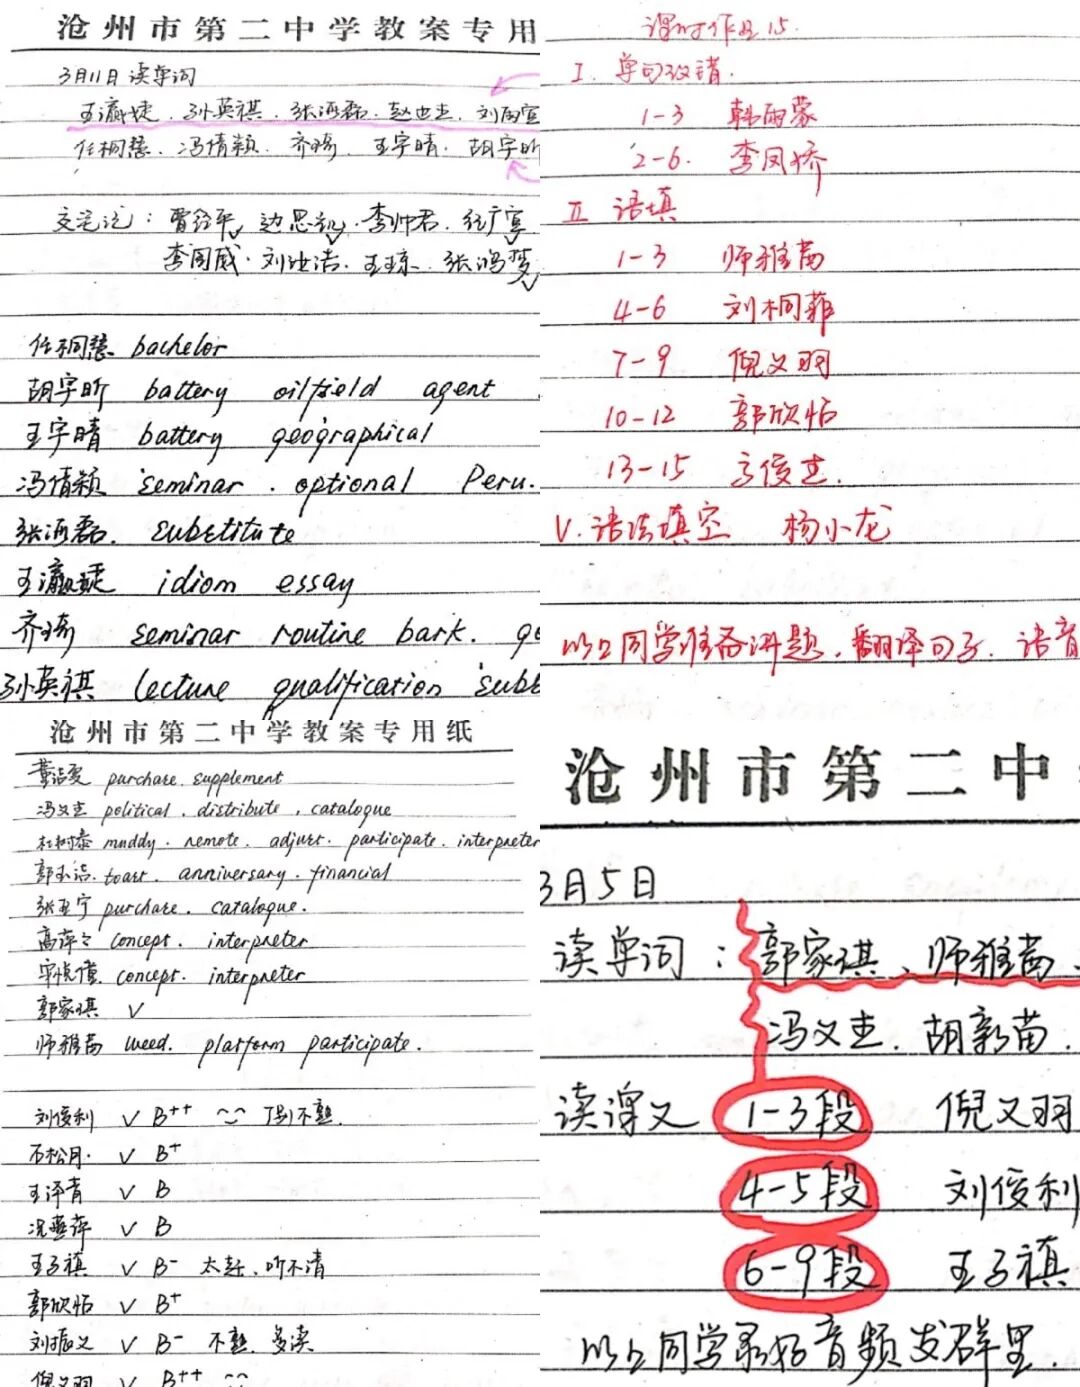 沧州市第二中学教案专用
3月11日 读单词
王瀛婕、孙英祺、张海磊、赵也圭、刘雨萱
任桐慧、冯倩颖、齐琦、王宇晴、胡宇昕
交笔记：曹铃平、边思凯、李帅君、纪广寧
李国威、刘汝洁、王琼、张鸿梦
任桐慧 bachelor
胡宇昕 battery oilfield agent
王宇晴 battery geographical
冯倩颖 seminar. optional Peru.
张海磊. substitute
王瀛婕 idiom essay
齐琦 seminar routine bark. ge
孙英祺 lecture qualification subt
沧州市第二中学教案专用纸
purchase. supplement
冯义圭 political. distribute. catalogue
杜树泰 muddy. remote. adjust. participate. interpreter
郭小洁. toast. anniversary. financial
张亚宁 purchase. catalogue.
高萍々 concept. interpreter
宋悦僮. concept. interpreter
郭家琪 √
师雅茜 weed. platform participate.
刘俊利 √ B++ 别不熟.
石松月. √ B+
王泽青 √ B
况燕萍 √ B
王子祺 √ B- 太轻、听不清
郭欣怡 √ B+
刘振义 √ B- 不熟, 多读
倪义羽 √ B++
课时作业15.
I. 单句改错.
1-3 韩雨蒙
2-6. 李凤娇
II 语填
1-3 师雅茜
4-6 刘桐菲
7-9 倪义羽
10-12 郭欣怡
13-15 高俊圭.
V. 语法填空 杨小龙
以上同学准备讲题、翻译句子、语音
沧州市第二中
3月5日
读单词：郭家琪、师雅茜、
冯义圭、胡新苗、
读课文 1-3段 倪义羽
4-5段 刘俊利
6-9段 王子祺
以上同学录好音频发群里.